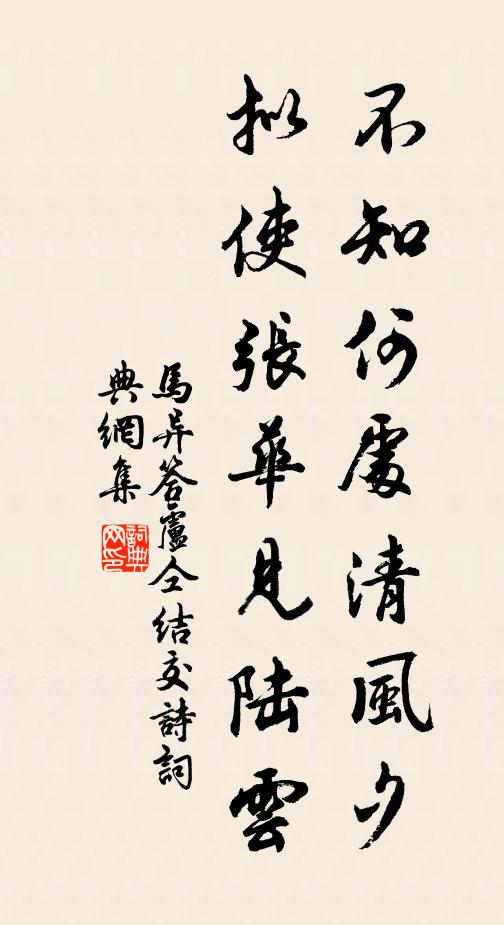 不知何處清風夕
拟使張華見陆雲
馬异答盧仝結交詩詞
典網集
詞典网印